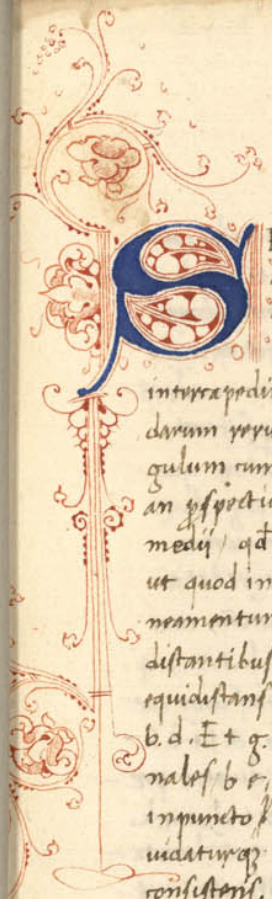 S
intercapedi
darum reru
gulum cum
an pspectiu
medii qd
ut quod in
neamentum
distantibus
equidistans
b. d. Et g.
nales b e
in puncto
uidaturqz
consistens.